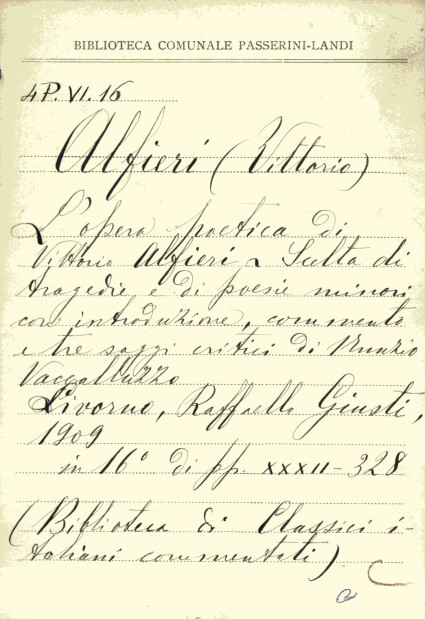 BIBLIOTECA COMUNALE PASSERINI-LANDI
4P.VI.16
Alfieri (Vittorio)
L'opera poetica di
Vittorio Alfieri - Scelta di
tragedie e di poesie minori
con introduzione, commento
e tre saggi critici di Nunzio
Vaccalluzzo
Livorno, Raffaello Giusti,
1909
in 16° di pp. XXXII-328
(Biblioteca di Classici i-
taliani commentati)